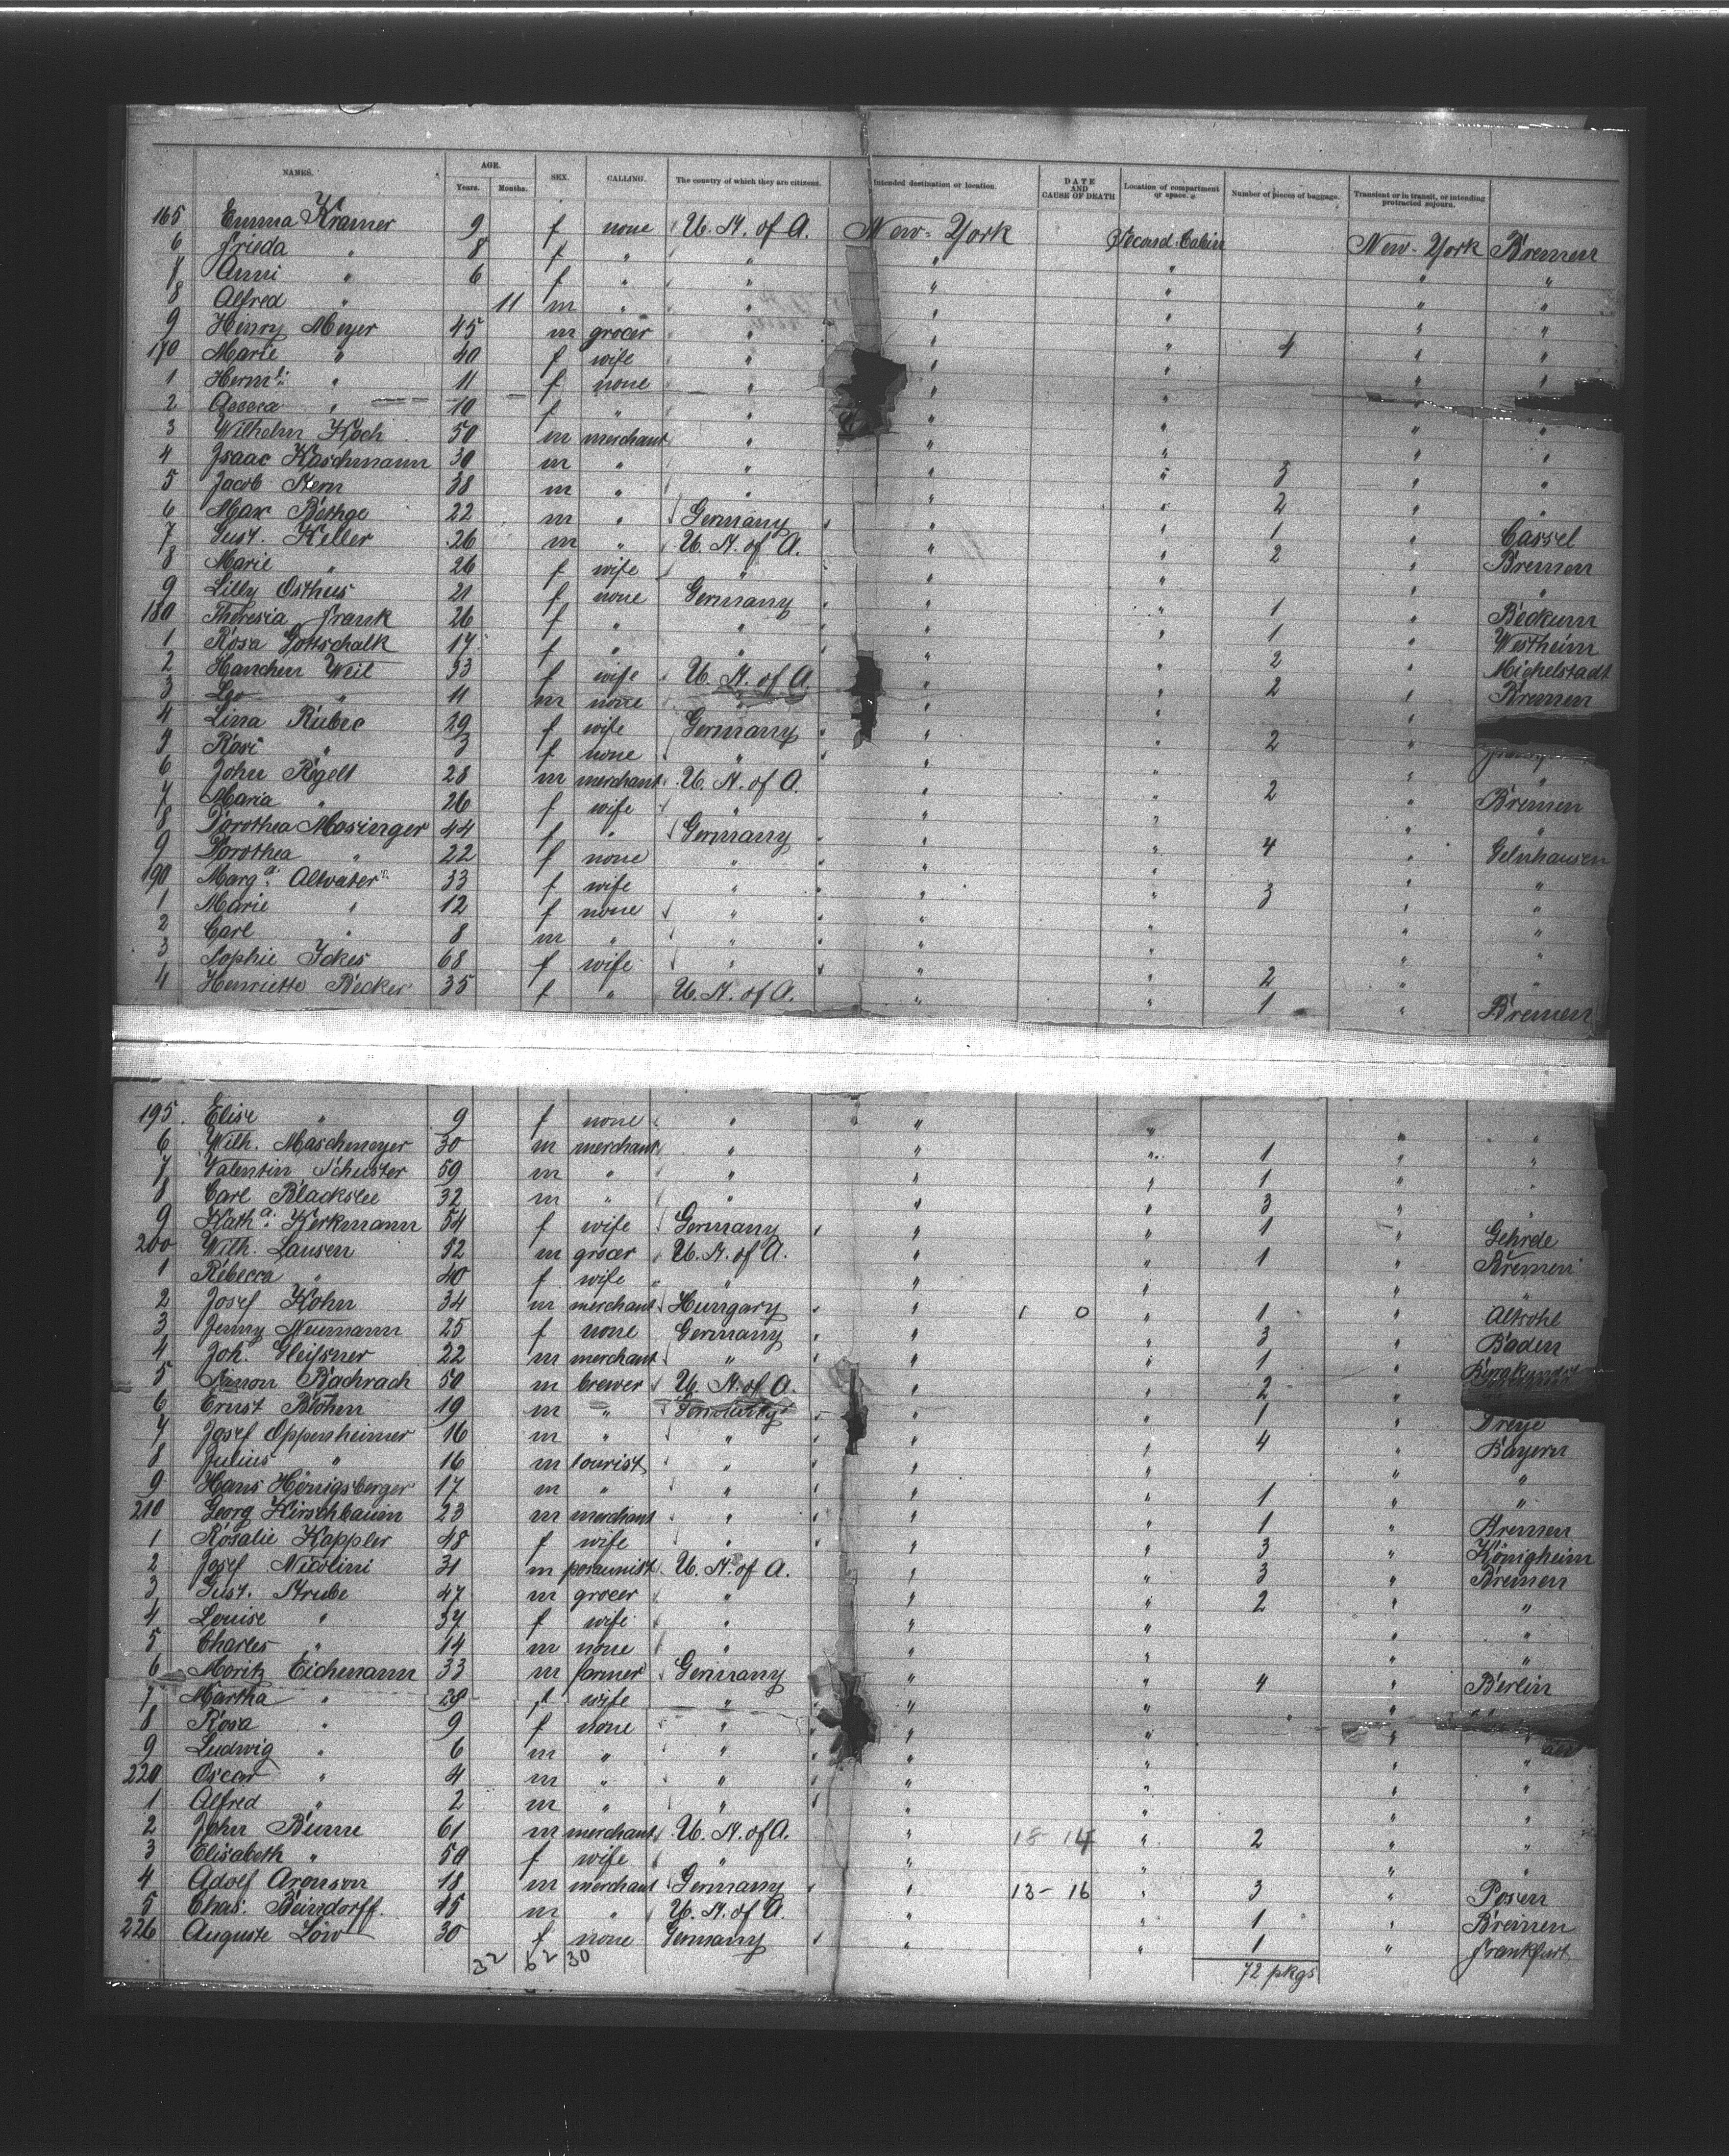 NAMES. AGE. SEX. CALLING. The country of which they are citizens. Intended destination or location. DATE AND CAUSE OF DEATH Location of compartment or space. Number of pieces of baggage. Transient or in transit, or intending protracted sojourn.
Years. Months.
165 Emma Kramer 9 f none U. St. of A. New-York Second Cabin New-York Bremen
6 Frieda " 8 f " " " " " "
7 Anni " 6 f " " " " " "
8 Alfred " 11 m " " " " " "
9 Henry Meyer 45 m grocer " " " 4 " "
170 Marie " 40 f wife " " " " "
1 Herm " 11 f none " " " "
2 " 10 f " " " " " "
3 Wilhelm Koch 50 m merchant " " " " "
4 Isaac Kaschmann 30 m " " " " 3 " "
5 Jacob Stern 38 m " " " " 2 " "
6 Max Bethge 22 m " Germany " " 1 " Cassel
7 Gust. Keller 26 m " U. St. of A. " " 2 " Bremen
8 Marie " 26 f wife " " " " "
9 Lilly Osthus 21 f none Germany " " 1 " Beckum
180 Theresia Frank 26 f " " " " 1 " Westheim
1 Rosa Gottschalk 17 f " " " " 2 " Michelstadt
2 Hanchen Weil 33 f wife U. St. of A. " " 2 " Bremen
3 Leo " 11 m none " " " "
4 Lina 29 f wife Germany " " 2 "
5 Rosi " 3 f none " " " " "
6 John Rigelt 28 m merchant U. St. of A. " " 2 " Bremen
7 Maria " 26 f wife " " " " "
8 Dorothea Mosinger 44 f " Germany " " 4 " Gelnhausen
9 Dorothea " 22 f none " " " " "
190 Marga. Altvater 33 f wife " " " 3 " "
1 Marie " 12 f none " " " " "
2 Carl " 8 m " " " " " "
3 Sophie Ickes 68 f wife " " " 2 " "
4 Henriette Becker 35 f " U. St. of A. " " 1 " Bremen
195 Elise " 9 f none " " " " "
6 Wilh. Maschmeyer 30 m merchant " " " 1 " "
7 Valentin Schuster 59 m " " " " 1 " "
8 Carl Blackslee 32 m " " " " 3 " "
9 Katha. Kerkmann 54 f wife Germany " " 1 " Gehrde
200 Wilh. Lausen 52 m grocer U. St. of A. " " 1 " Bremen
1 Rebecca " 40 f wife " " " " "
2 Josef Kohn 34 m merchant Hungary " 1 0 " 1 " Altsohl
3 Jenny Neumann 25 f none Germany " " 3 " Baden
4 Joh. Gleissner 22 m merchant " " " 1 "
5 Simon Bachrach 50 m brewer U. St. of A. " " 2 "
6 Ernst Blohm 19 m " Germany " " 1 " Dreye
7 Josef Oppenheimer 16 m " " " " 4 " Bayern
8 Julius " 16 m tourist " " " " "
9 Hans Hönigsberger 17 m " " " " 1 " "
210 Georg Kirschbaum 23 m merchant " " " 1 " Bremen
1 Rosalie Kappler 48 f wife " " " 3 " Königheim
2 Josef Nicolini 31 m U. St. of A. " " 3 " Bremen
3 Gust. Strube 47 m grocer " " " 2 " "
4 Louise " 37 f wife " " " " "
5 Charles " 14 m none " " " " "
6 Moritz Eichmann 33 m farmer Germany " " 4 " Berlin
7 Martha " 28 f wife " " " "
8 Rosa " 9 f none " " " "
9 Ludwig " 6 m " " " " "
220 Oscar " 4 m " " " " " "
1 Alfred " 2 m " " " " " "
2 John 61 m merchant U. St. of A. " 18 14 " 2 " "
3 Elisabeth " 50 f wife " " " " "
4 Adolf Aronson 18 m merchant Germany " 13-16 " 3 " Posen
5 Chas. Beindorff 45 m " U. St. of A. " " 1 " Bremen
226 Auguste Löw 30 f none Germany " " 1 " Frankfurt
32 62 30 72 pkgs